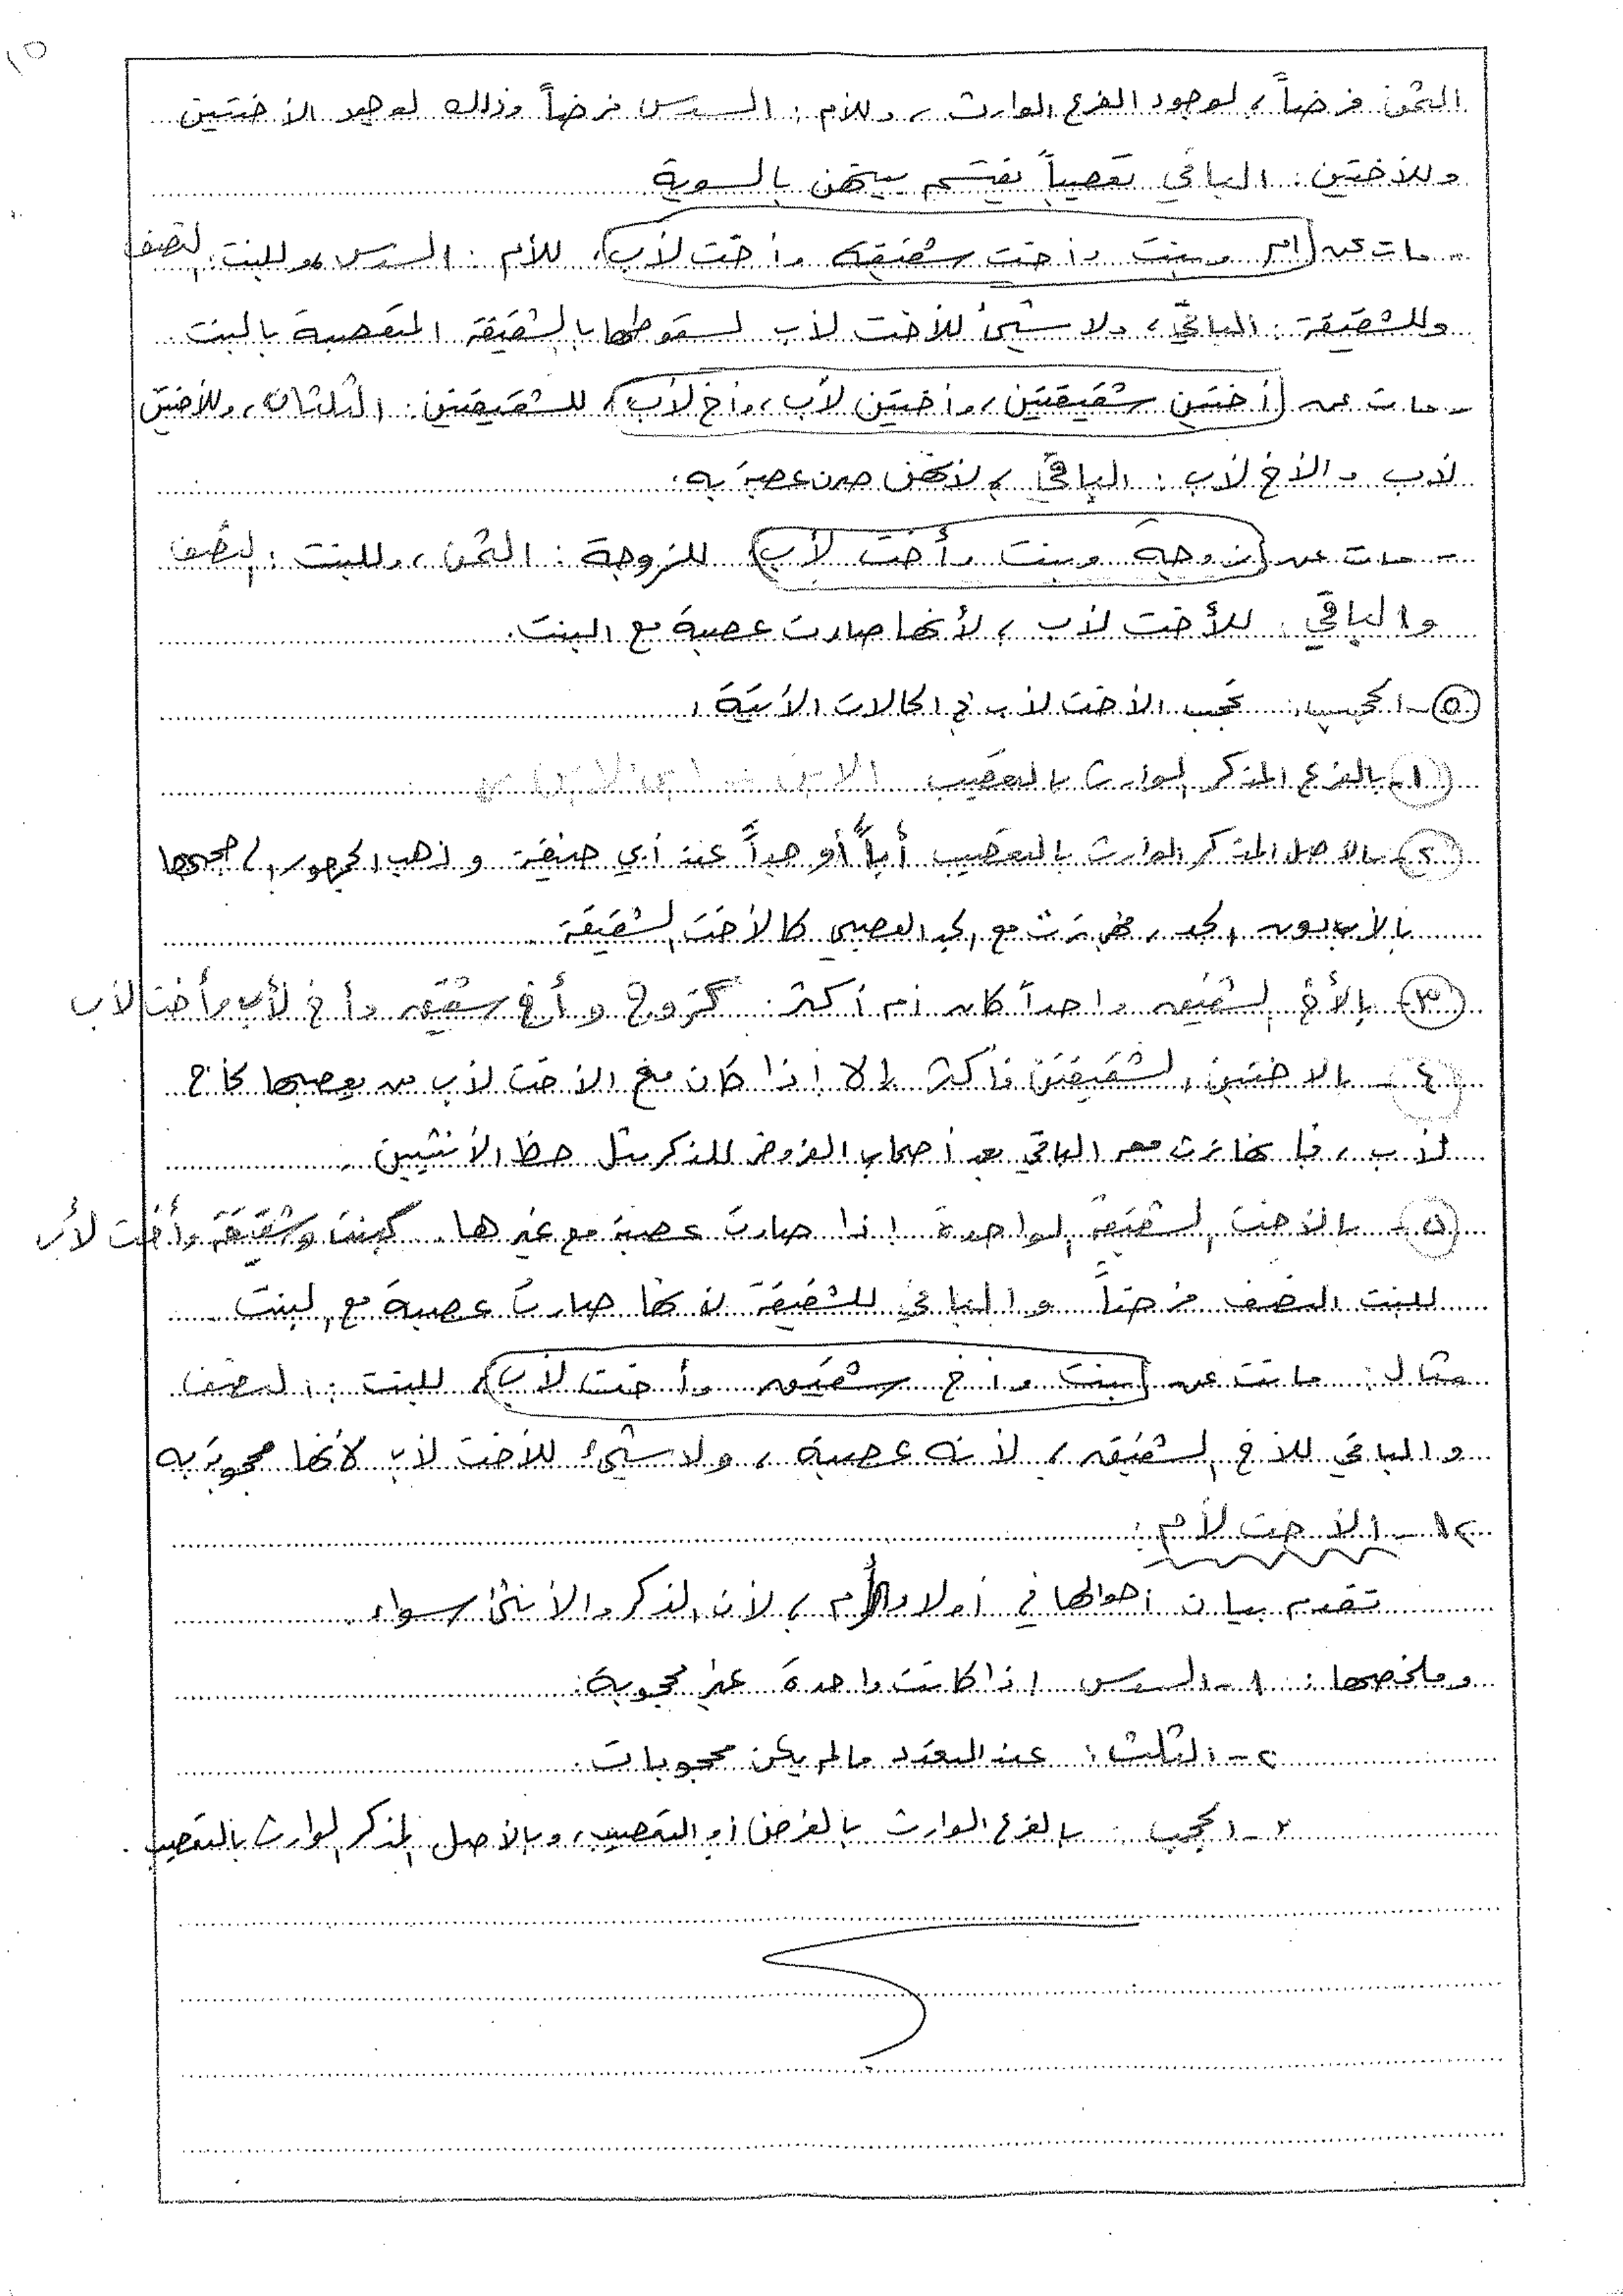 ١٥
الثمن فرضاً، لوجود الفرع الوارث، وللأم: السدس فرضاً وذلك لوجود الأختين
وللأختين: الباقي تعصيباً يقتسم بينهن بالسوية
- مات عن (أم وبنت وأخت شقيقة وأخت لأب)، للأم: السدس، وللبنت: النصف
وللشقيقة: الباقي، ولا شيء للأخت لأب لسقوطها بالشقيقة المتعصبة بالبنت
- مات عن (أختين شقيقتين، وأختين لأب، وأخ لأب)، للشقيقتين: الثلثان، وللأختين
لأب والأخ لأب: الباقي، لأنهن صرن عصبة به.
- مات عن (زوجة وبنت وأخت لأب) للزوجة: الثمن، وللبنت: النصف
والباقي: للأخت لأب، لأنها صارت عصبة مع البنت.
٥- الحجب: تحجب الأخت لأب في الحالات الآتية:
١- بالفرع المذكر الوارث بالتعصيب الابن - ابن الابن
٢- بالأصل المذكر الوارث بالتعصيب أباً أو جداً عند أبي حنيفة وذهب الجمهور إلى حجبها
بالأب دون الجد، فهي ترث مع الجد العصبي كالأخت الشقيقة
٣- بالأخ الشقيق واحداً كان أم أكثر: كزوج وأخ شقيق وأخ لأب وأخت لأب
٤- بالأختين الشقيقتين فأكثر إلا إذا كان مع الأخت لأب من يعصبها كأخ
لأب، فإنها ترث معه الباقي بعد أصحاب الفروض للذكر مثل حظ الأنثيين
٥- بالأخت الشقيقة الواحدة إذا صارت عصبة مع غيرها. كبنت وشقيقة وأخت لأب
للبنت النصف فرضاً والباقي للشقيقة لأنها صارت عصبة مع البنت
مثال: ماتت عن (بنت وأخ شقيق وأخت لأب)، للبنت: النصف
والباقي للأخ الشقيق، لأنه عصبة، ولا شيء للأخت لأب لأنها محجوبة به
١٢- الأخت لأم:
تقدم بيان أحوالها في أولاد الأم، لأن الذكر والأنثى سواء.
وملخصها: ١- السدس إذا كانت واحدة غير محجوبة.
٢- الثلث: عند التعدد ما لم يكن محجوبات.
٣- الحجب: بالفرع الوارث بالفرض أو التعصيب، وبالأصل المذكر الوارث بالتعصيب.